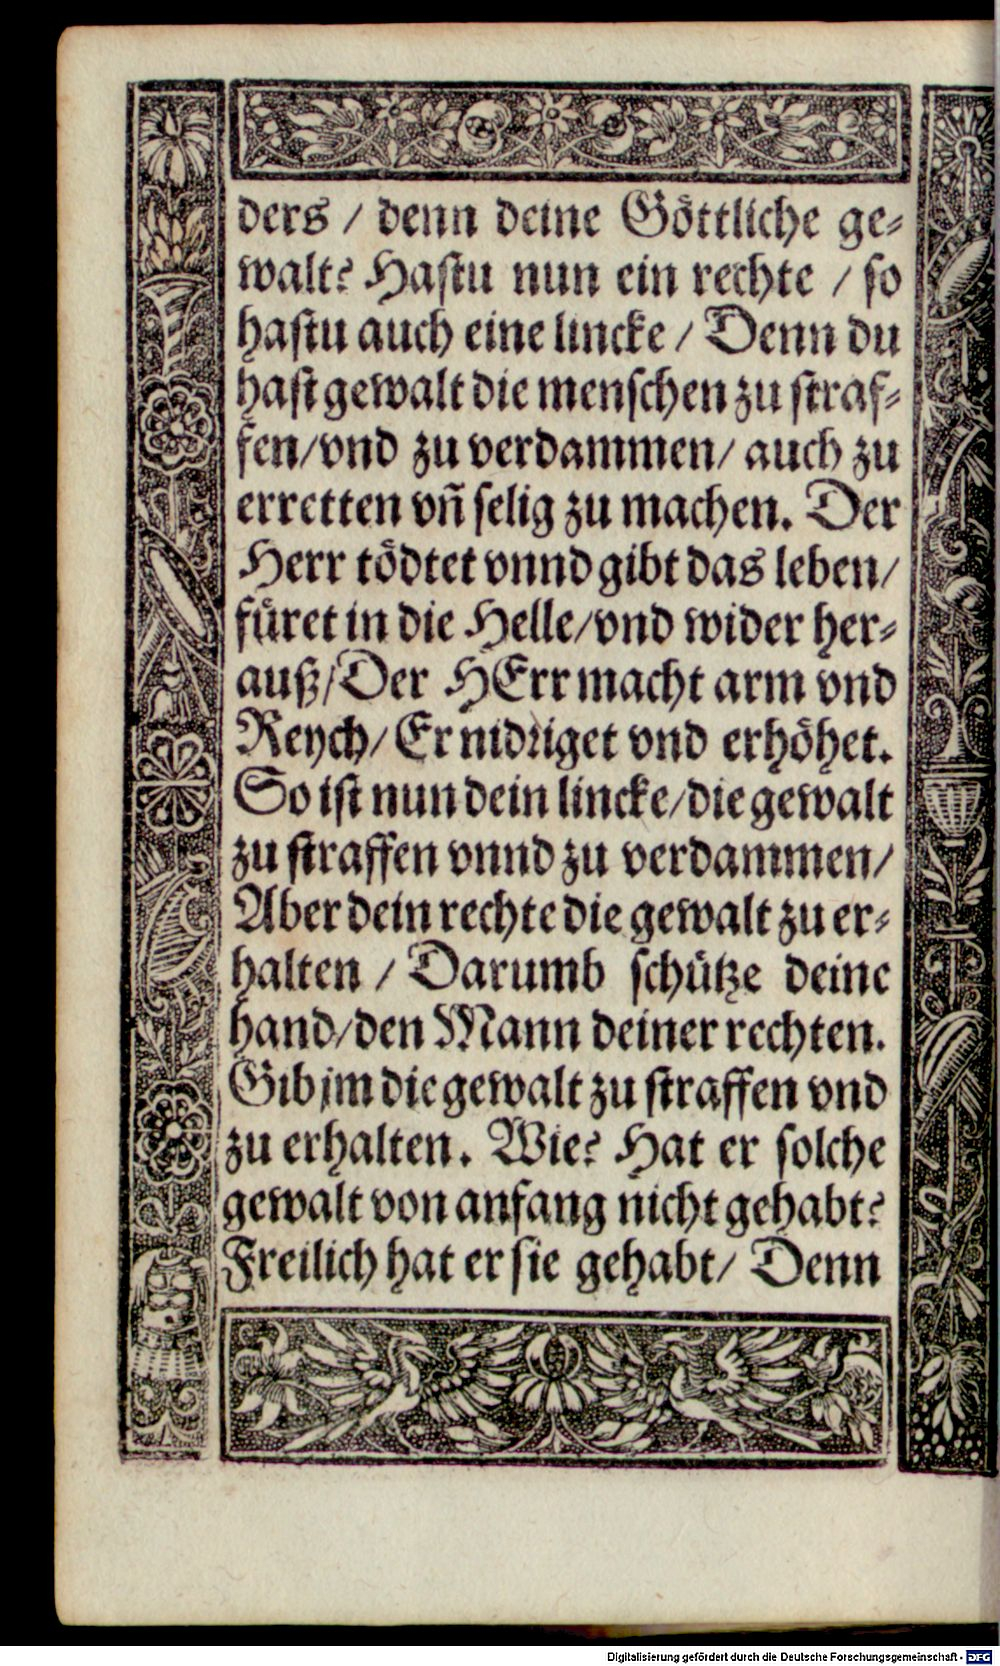 ders / denn deine Göttliche ge⸗
walt? Hastu nun ein rechte / so
hastu auch eine lincke / Denn du
hast gewalt die menschen zu straf⸗
fen/vnd zu verdammen/ auch zu
erretten vñ selig zu machen. Der
Herr tödtet vnnd gibt das leben/
füret in die Helle/vnd wider her⸗
auß/Der HErr macht arm vnd
Reych/ Er nidriget vnd erhöhet.
So ist nun dein lincke/die gewalt
zu straffen vnnd zu verdammen/
Aber dein rechte die gewalt zu er⸗
halten / Darumb schütze deine
hand/den Mann deiner rechten.
Gib jm die gewalt zu straffen vnd
zu erhalten. Wie? Hat er solche
gewalt von anfang nicht gehabt?
Freilich hat er sie gehabt/ Denn
Digitalisierung gefördert durch die Deutsche Forschungsgemeinschaft - DFG